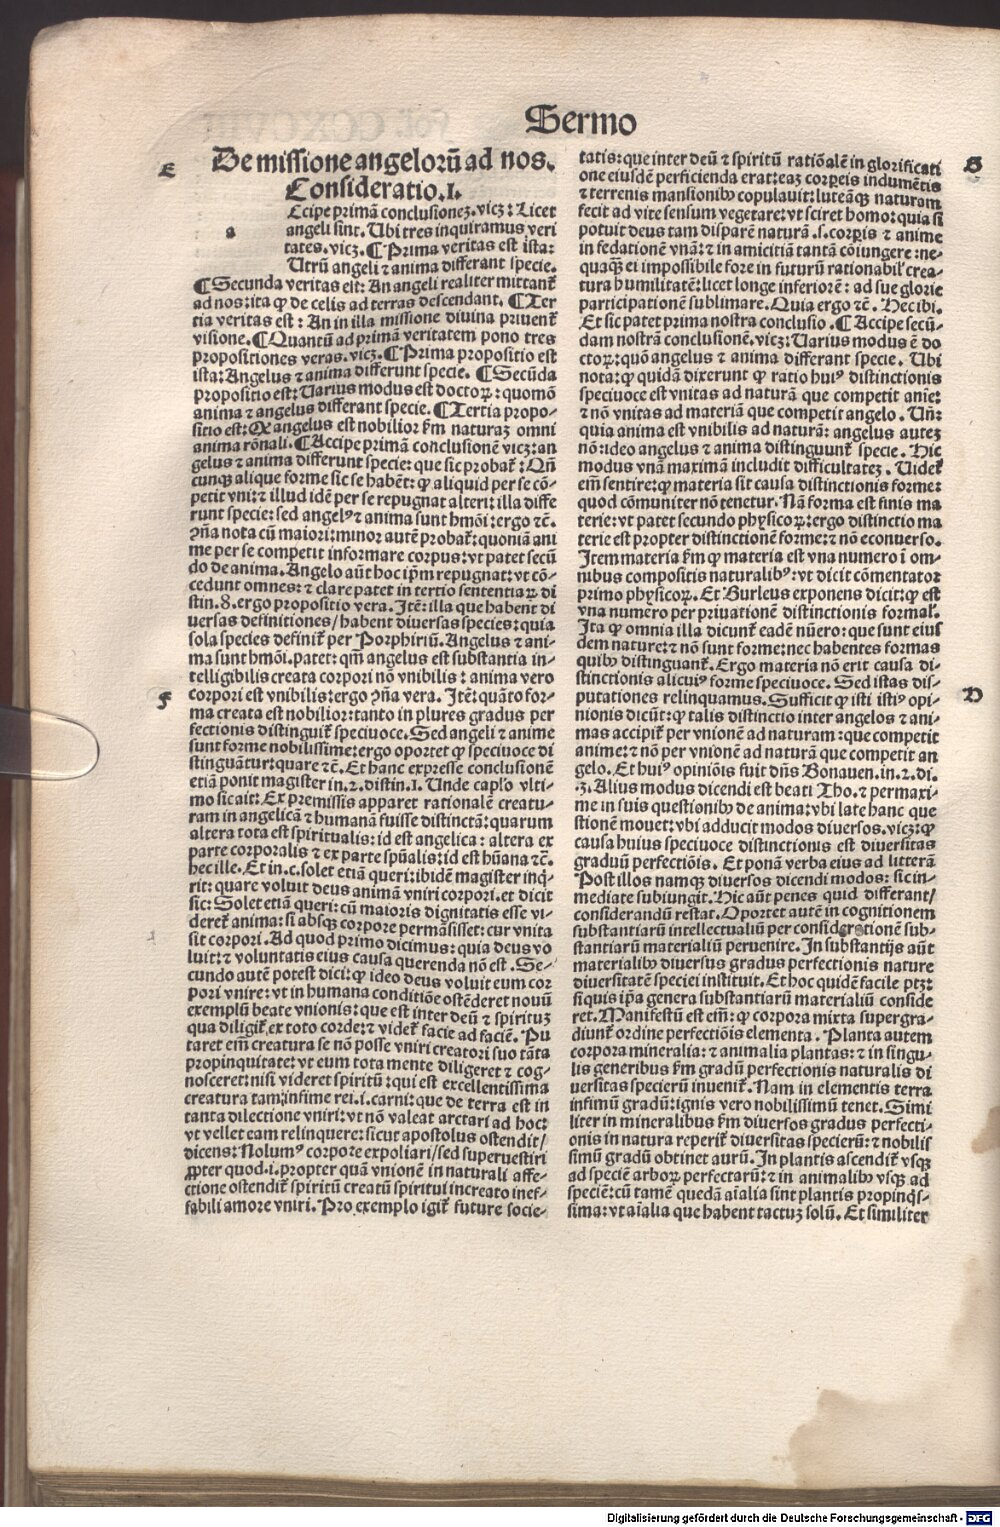 Sermo
E
De missione angeloꝝ ad nos.
Consideratio.I.
a
Ccipe primã conclusioneʒ.vicʒ: Licet
angeli sint. Ubi tres inquiramus veri
tates. vicʒ. ¶ Prima veritas est ista:
Utrũ angeli ⁊ anima differant specie.
¶ Secunda veritas est: An angeli realiter mittant᷑
ad nos: ita ꝙ de celis ad terras descendant. ¶ Ter
tia veritas est: An in illa missione divina priuent᷑
visione. ¶ Quantũ ad primã veritatem pono tres
propositiones veras. vicʒ. ¶ Prima propositio est
ista: Angelus ⁊ anima differunt specie. ¶ Secũda
propositio est: Uarius modus est doctoꝝ: quomõ
anima ⁊ angelus differant specie. ¶ Tertia propo-
sitio est: Qꝫ angelus est nobilior ẜm naturaʒ omni
anima rõnali. ¶ Accipe primã conclusionẽ vicʒ: an
gelus ⁊ anima differunt specie: que sic probat᷑: Qñ
cunqꝫ alique forme sic se habẽt: ꝙ aliquid per se cõ-
petit vni: ⁊ illud idẽ per se repugnat alteri: illa diffe
runt specie: sed angelꝰ ⁊ anima sunt hmõi: ergo ⁊c̃.
ꝯña nota cũ maiori: minor autẽ probat᷑: quoniã ani
me per se competit informare corpus: vt patet secũ
do de anima. Angelo aũt hoc ip̃m repugnat: vt cõ-
cedunt omnes: ⁊ clare patet in tertio sententiaꝝ di
stin. 8. ergo propositio vera. Itẽ: illa que habent di
uersas definitiones/ habent diuersas species: quia
sola species definit᷑ per Porphiriũ. Angelus ⁊ ani-
ma sunt hmõi. patet: qm̃ angelus est substantia in-
telligibilis creata corpori nõ vnibilis: anima vero
F
corpori est vnibilis: ergo ꝯña vera. Itẽ: quãto for-
ma creata est nobilior: tanto in plures gradus per
fectionis distinguit᷑ speciuoce. Sed angeli ⁊ anime
sunt forme nobilissime: ergo oportet ꝙ speciuoce di
stinguãtur: quare ⁊c̃. Et hanc expresse conclusionẽ
etiã ponit magister in. 2. distin. 1. Unde cap̃lo vlti-
mo sic ait: Ex premissis apparet rationalẽ creatu-
ram in angelicã ⁊ humanã fuisse distinctã: quarum
altera tota est spiritualis: id est angelica: altera ex
parte corporalis ⁊ ex parte sp̃ualis: id est hũana ⁊c̃.
hec ille. Et in. c. solet etiã queri: ibidẽ magister inq̃-
rit: quare voluit deus animã vniri corpori. et dicit
sic: Solet etiã queri: cũ maioris dignitatis esse vi-
deret᷑ anima: si absqꝫ corpore permãsisset: cur vnita
sit corpori. Ad quod primo dicimus: quia deus vo
luit: ⁊ voluntatis eius causa querenda nõ est. Se-
cundo autẽ potest dici: ꝙ ideo deus voluit eum cor
pori vnire: vt in humana conditiõe ostẽderet nouũ
exemplũ beate vnionis: que est inter deũ ⁊ spirituʒ
qua diligit᷑ ex toto corde: ⁊ videt᷑ facie ad faciẽ. Pu
taret em̃ creatura se nõ posse vniri creatori suo tãta
propinquitate: vt eum tota mente diligeret ⁊ cog-
nosceret: nisi videret spiritũ: qui est excellentissima
creatura tam: infime rei. i. carni: que de terra est in
tanta dilectione vniri: vt nõ valeat arctari ad hoc:
vt vellet eam relinquere: sicut apostolus ostendit/
dicens: Nolumꝰ corpore expoliari/ sed superuestiri
ꝓpter quod. i. propter quã vnionẽ in naturali affe-
ctione ostendit᷑ spiritũ creatũ spiritui increato inef-
fabili amore vniri. Pro exemplo igit᷑ future socie-
tatis: que inter deũ ⁊ spiritũ ratiõalẽ in glorificati
one eiusdẽ perficienda erat: eaʒ corꝑeis indumẽtis
⁊ terrenis mansionibꝰ copulauit: luteãqꝫ naturam
fecit ad vite sensum vegetare: vt sciret homo: quia si
potuit deus tam disparẽ naturã .s. corꝑis ⁊ anime
in fedationẽ vnã: ⁊ in amicitiã tantã cõiungere: ne-
quaq̃ꝫ ei impossibile fore in futurũ rationabil᷑ crea-
tura humilitatẽ: licet longe inferiorẽ: ad sue glorie
participationẽ sublimare. Quia ergo ⁊c̃. Hec ibi.
Et sic patet prima nostra conclusio. ¶ Accipe secũ-
dam nostrã conclusionẽ. vicʒ: Uarius modus ẽ do
ctoꝝ: quõ angelus ⁊ anima differant specie. Ubi
nota: ꝙ quidã dixerunt ꝙ ratio huiꝰ distinctionis
speciuoce est vnitas ad naturã que competit anie:
⁊ nõ vnitas ad materiã que competit angelo. Uñ:
quia anima est vnibilis ad naturã: angelus auteʒ
nõ: ideo angelus ⁊ anima distinguunt᷑ specie. Hic
modus vnã maximã includit difficultateʒ. Uidet᷑
em̃ sentire: ꝙ materia sit causa distinctionis forme:
quod cõmuniter nõ tenetur. Nã forma est finis ma
terie: vt patet secundo phisicoꝝ: ergo distinctio ma
terie est propter distinctionẽ forme: ⁊ nõ econuerso.
Item materia ẜm ꝙ materia est vna numero ĩ om-
nibus compositis naturalibꝰ: vt dicit cõmentator
primo phisicoꝝ. Et Burleus exponens dicit: ꝙ est
vna numero per priuationẽ distinctionis formal᷑.
Ita ꝙ omnia illa dicunt᷑ eadẽ nũero: que sunt eius
dem nature: ⁊ nõ sunt forme: nec habentes formas
quibꝰ distinguant᷑. Ergo materia nõ erit causa di-
stinctionis alicuiꝰ forme speciuoce. Sed istas dis-
putationes relinquamus. Sufficit ꝙ isti istiꝰ opi-
nionis dicũt: ꝙ talis distinctio inter angelos ⁊ ani-
mas accipit᷑ per vnionẽ ad naturam: que competit
anime: ⁊ nõ per vnionẽ ad naturã que competit an
gelo. Et huiꝰ opiniõis fuit dñs Bonauen. in. 2. di.
.3. Alius modus dicendi est beati Tho. ⁊ permaxi-
me in suis questionibꝰ de anima: vbi late hanc que
stionẽ mouet: vbi adducit modos diuersos. vicʒ: ꝙ
causa huius speciuoce distinctionis est diuersitas
graduũ perfectiõis. Et ponã verba eius ad litterã
Post illos namqꝫ diuersos dicendi modos: sic in-
mediate subiungit. Hic aũt penes quid differant/
considerandũ restat. Oportet autẽ in cognitionem
substantiarũ intellectualiũ per considerationẽ sub-
stantiarũ materialiũ peruenire. In substantijs aũt
materialibꝰ diuersus gradus perfectionis nature
diuersitatẽ speciei instituit. Et hoc quidẽ facile ptʒ:
si quis ip̃a genera substantiarũ materialiũ conside
ret. Manifestũ est em̃: ꝙ corpora mixta supergra-
diunt᷑ ordine perfectiõis elementa. Planta autem
corpora mineralia: ⁊ animalia plantas: ⁊ in singu-
lis generibus ẜm gradũ perfectionis naturalis di
uersitas specierũ inuenit᷑. Nam in elementis terra
infimũ gradũ: ignis vero nobilissimũ tenet. Simi
liter in mineralibus ẜm diuersos gradus perfecti-
onis in natura reperit᷑ diuersitas specierũ: ⁊ nobilis
simũ gradũ obtinet aurũ. In plantis ascendit᷑ vsqꝫ
ad speciẽ arboꝝ perfectarũ: ⁊ in animalibꝰ vsqꝫ ad
speciẽ: cũ tamẽ quedã aĩalia sint plantis propinq̃s-
sima: vt aĩalia que habent tactuʒ solũ. Et similiter
G
D
Digitalisierung gefördert durch die Deutsche Forschungsgemeinschaft - DFG